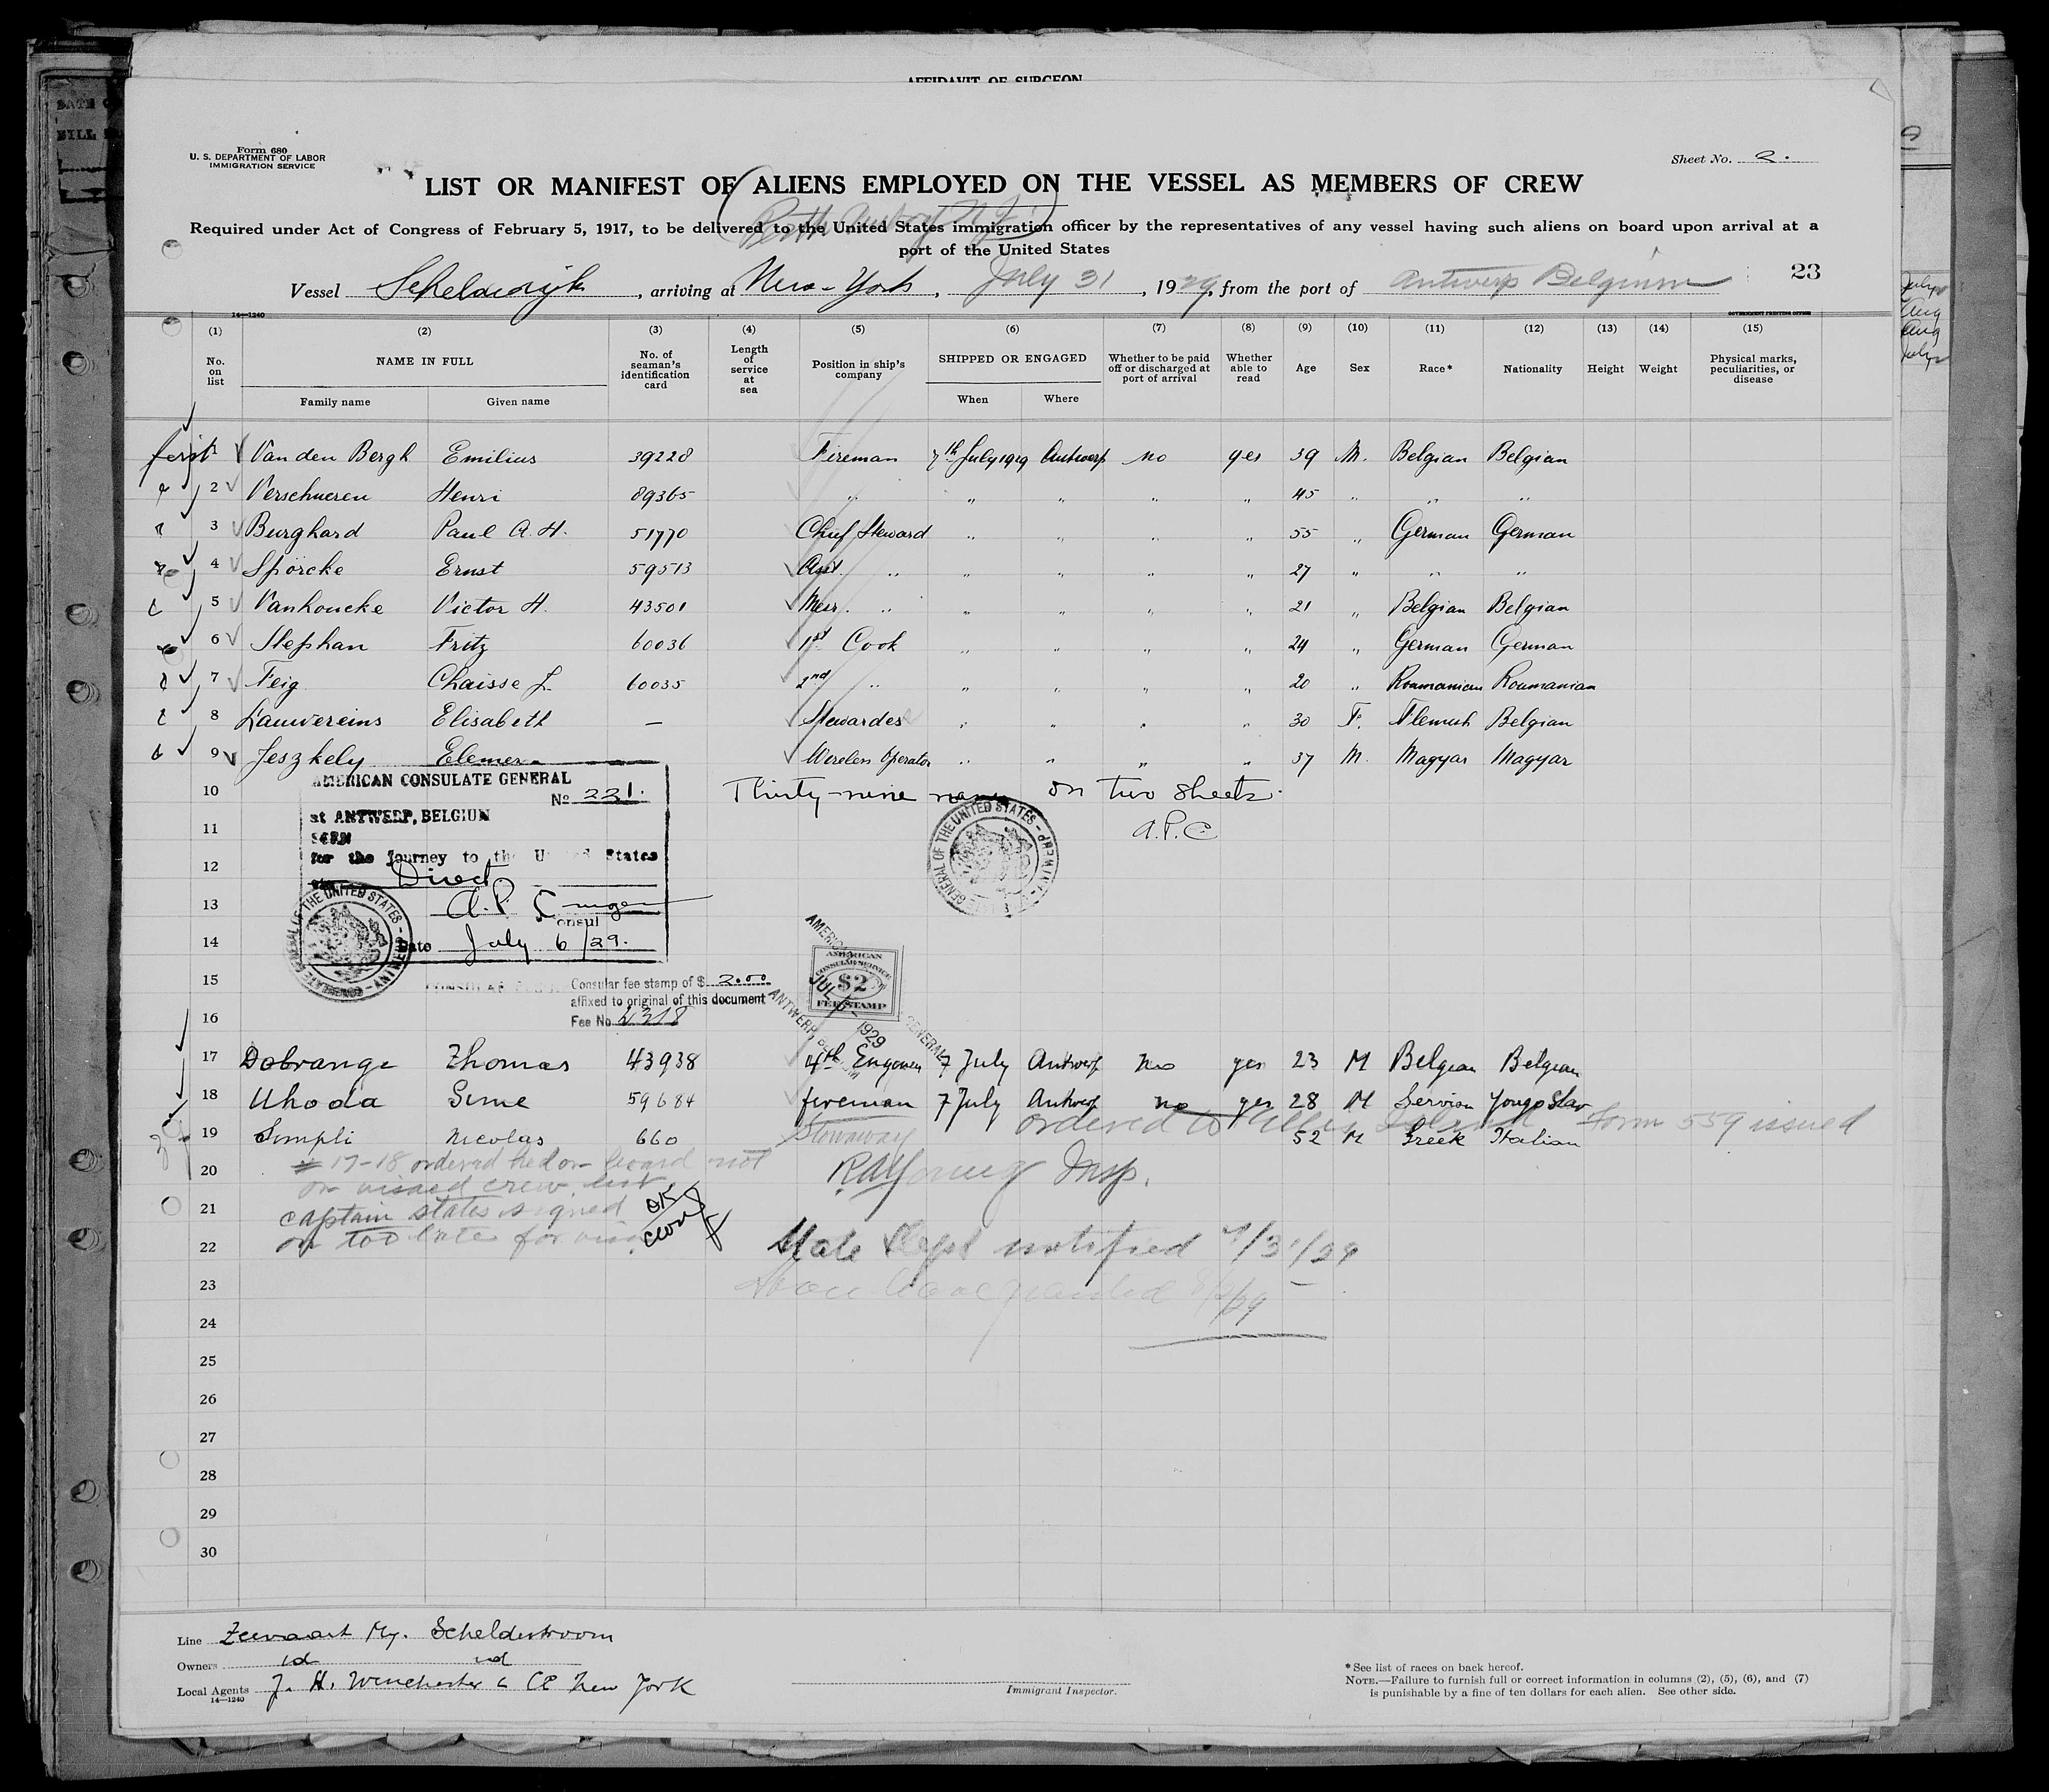 AFFIDAVIT OF SURGEON
Form 680
U. S. DEPARTMENT OF LABOR
IMMIGRATION SERVICE
Sheet No. 2.
LIST OR MANIFEST OF ALIENS EMPLOYED ON THE VESSEL AS MEMBERS OF CREW
(Perth Amboy N.J.)
Required under Act of Congress of February 5, 1917, to be delivered to the United States immigration officer by the representatives of any vessel having such aliens on board upon arrival at a
port of the United States
Vessel Scheldedyk, arriving at New-York, July 31, 1929, from the port of Antwerp Belgium 23
14—1240 GOVERNMENT PRINTING OFFICE
(1) (2) (3) (4) (5) (6) (7) (8) (9) (10) (11) (12) (13) (14) (15)
No. on list NAME IN FULL No. of seaman's identification card Length of service at sea Position in ship's company SHIPPED OR ENGAGED Whether to be paid off or discharged at port of arrival Whether able to read Age Sex Race* Nationality Height Weight Physical marks, peculiarities, or disease
Family name Given name When Where
first Van den Bergh Emilius 39228 Fireman 7th July 1929 Antwerp no yes 39 M. Belgian Belgian
2 Verschueren Henri 89365 " " " " " 45 " " "
3 Burghard Paul A. H. 51770 Chief Steward " " " " 55 " German German
4 Spörcke Ernst 59513 Asst. " " " " " 27 " " "
5 Vanhoucke Victor H. 43501 Mess. " " " " " 21 " Belgian Belgian
6 Stephan Fritz 60036 1st Cook " " " " 24 " German German
7 Feig Chaisse J. 60035 2nd " " " " " 20 " Roumanian Roumanian
8 Lauwereins Elisabeth — Stewardes " " " " 30 F. Flemish Belgian
9 Jeszkely Elemer Wireless Operator " " " " 37 M. Magyar Magyar
10 Thirty-nine names on two sheets.
A.P.C.
AMERICAN CONSULATE GENERAL
No 221.
at ANTWERP, BELGIUM
SEEN
for the Journey to the United States
Direct
A. P.
Consul
Date July 6/29.
11
12
13
14
15
16
Consular fee stamp of $ 2.00
affixed to original of this document
Fee No. 4318
AMERICAN
CONSULAR SERVICE
$2
FEE STAMP
1929
17 Dobrange Thomas 43938 4th Engineer 7 July Antwerp no yes 23 M Belgian Belgian
18 Uhoda Sime 59684 fireman 7 July Antwerp no yes 28 M Servian Yougo Slav
ordered to Ellis Island Form 559 issued
19 Simpli Nicolas 660 Stowaway 52 M Greek Italian
20 # 17-18 ordered held on board not
on visaed crew list
captain states signed
on too late for visa
OK
RA Young Insp.
21
22 State Dept notified 7/31/29
23 Shore leave granted 8/2/29
24
25
26
27
28
29
30
Line Zeevaart My. Scheldestroom
Owners id id
Local Agents J. H. Winchester & Co New York
14—1240
Immigrant Inspector.
*See list of races on back hereof.
NOTE.—Failure to furnish full or correct information in columns (2), (5), (6), and (7)
is punishable by a fine of ten dollars for each alien. See other side.